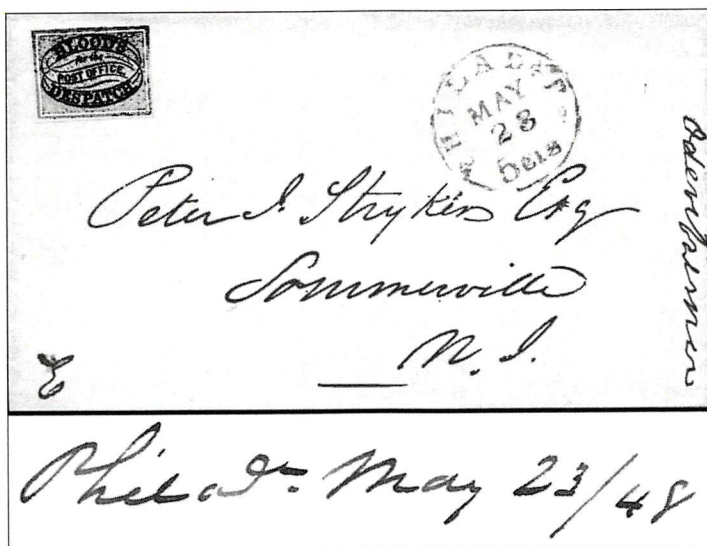 BLOOD'S
for the
POST OFFICE.
DESPATCH
PHILADA Pa
MAY
23
5cts
Peter I. Strykers Esq
Sommerville
N. J.
E
Philada. May 23/48